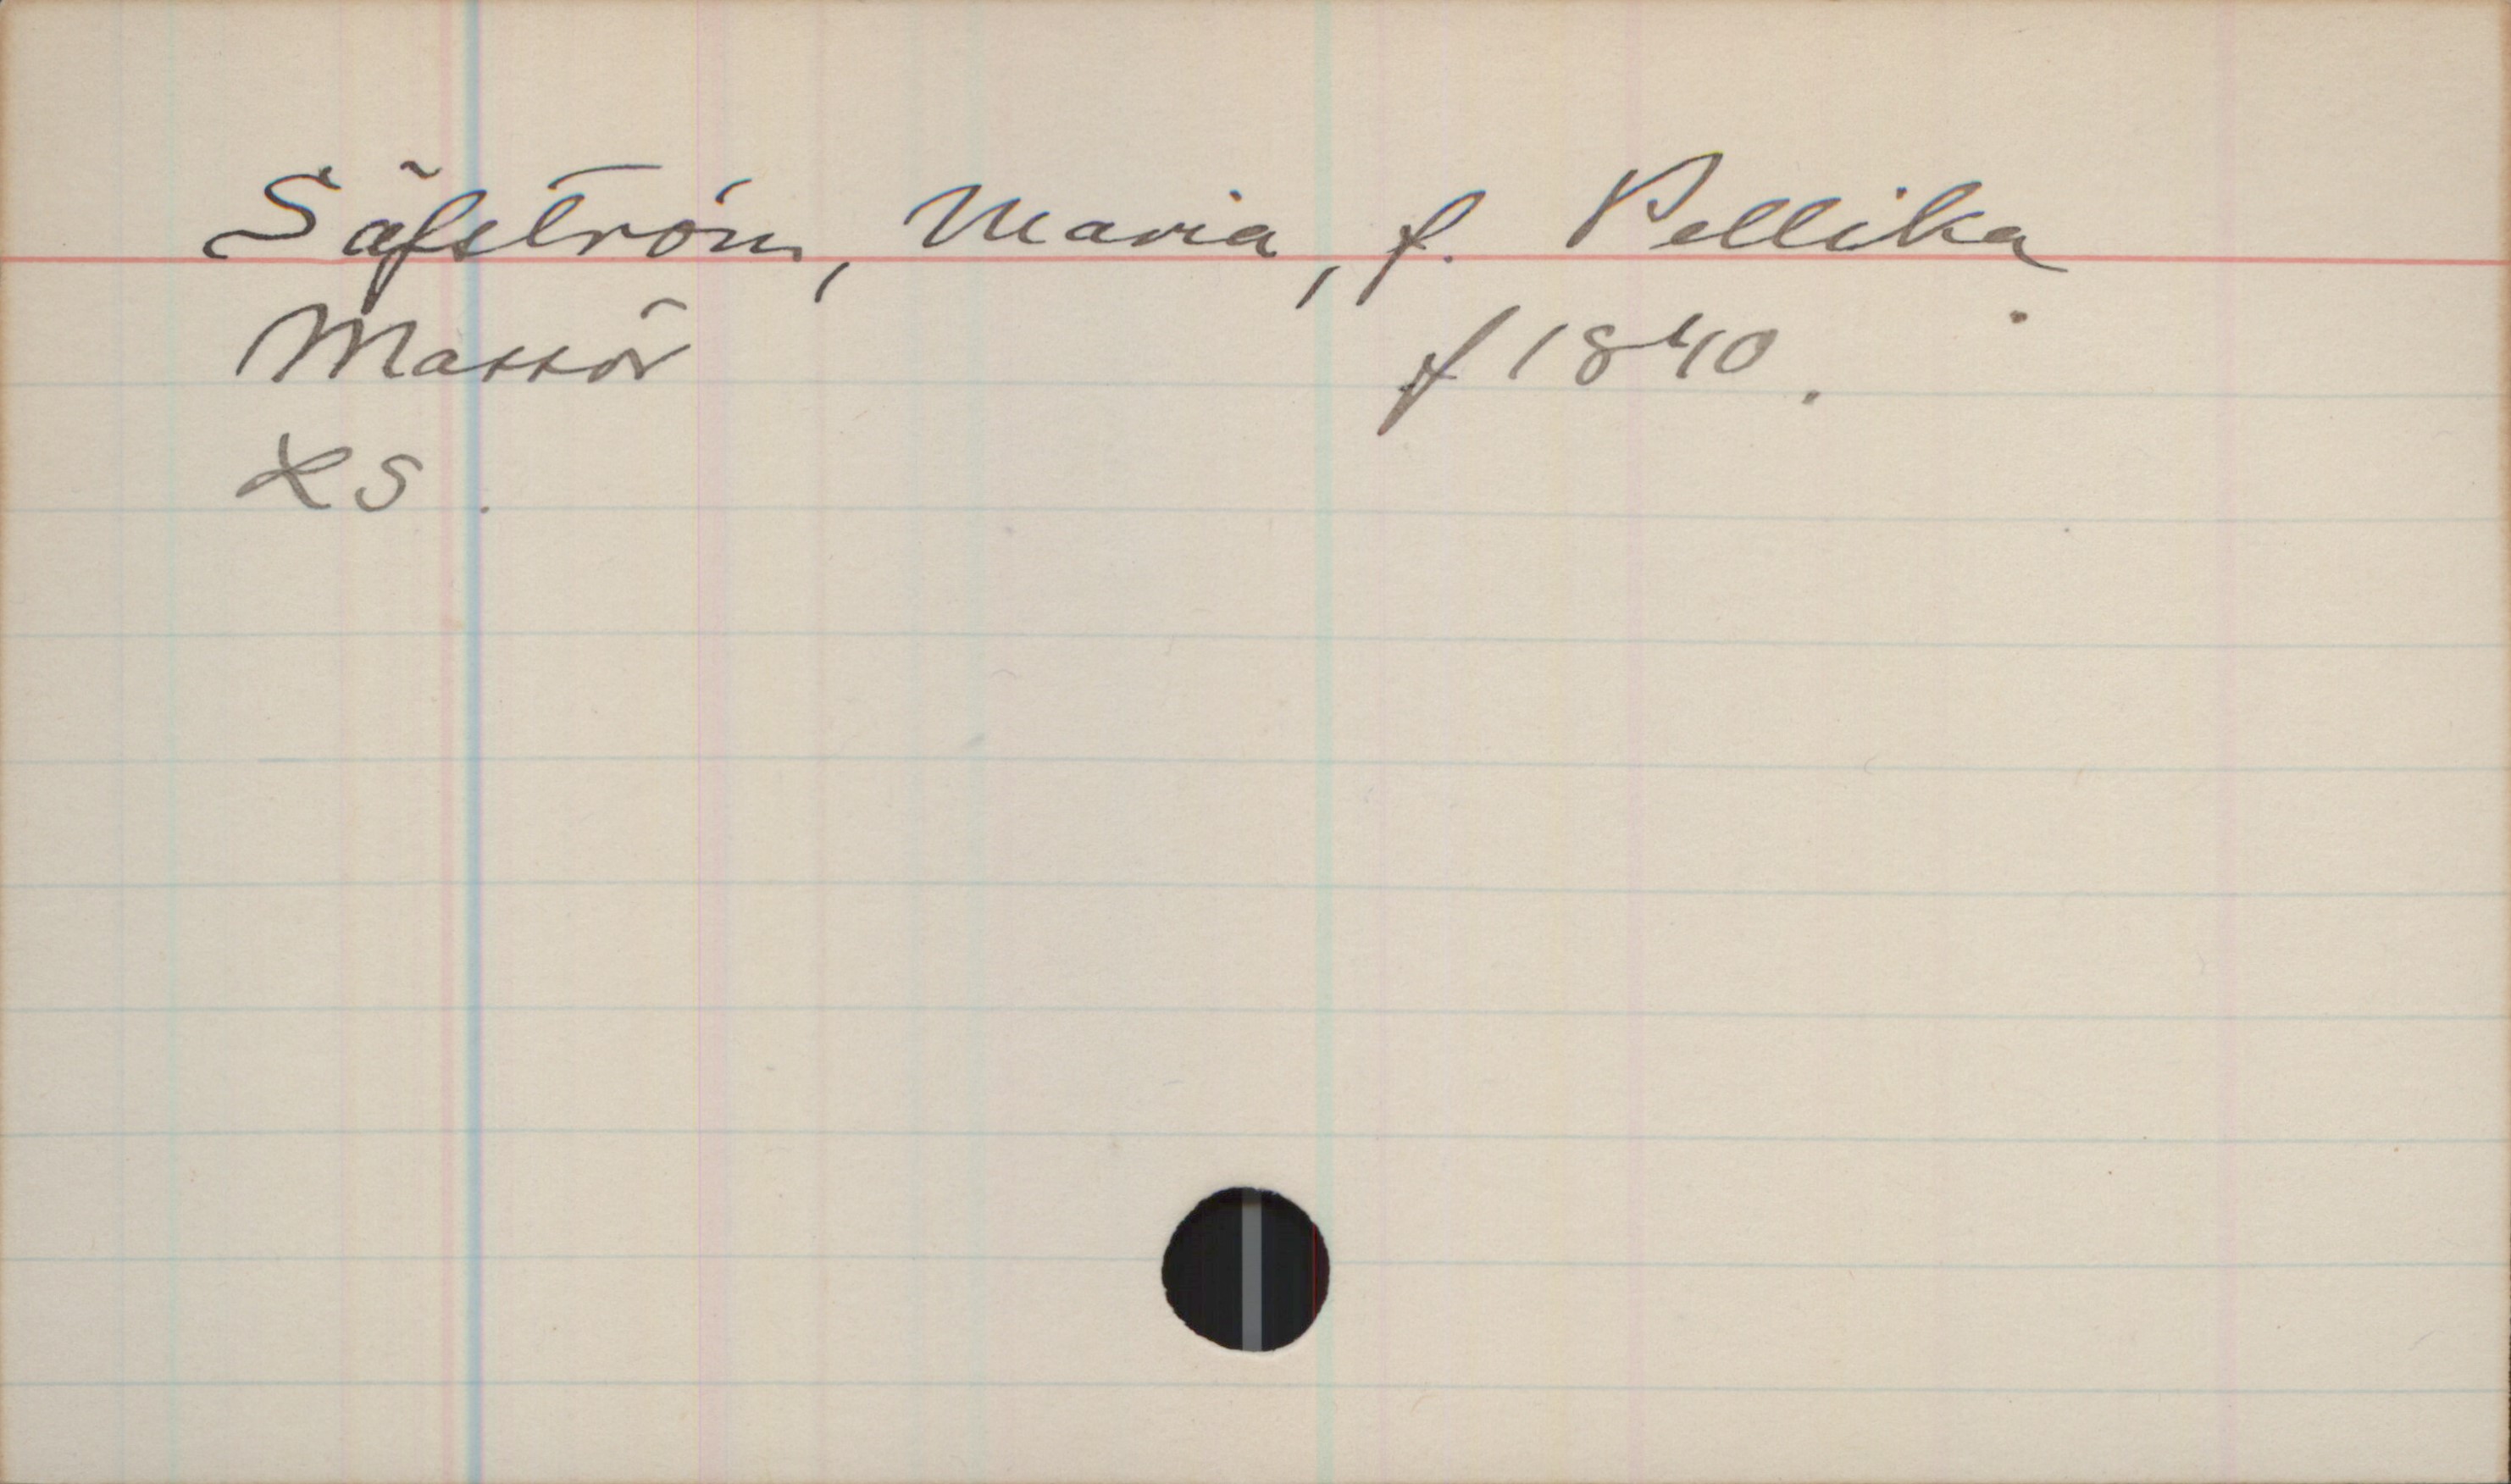 Säfström, Maria, f. Pellika
Massör f 1840.
LS.